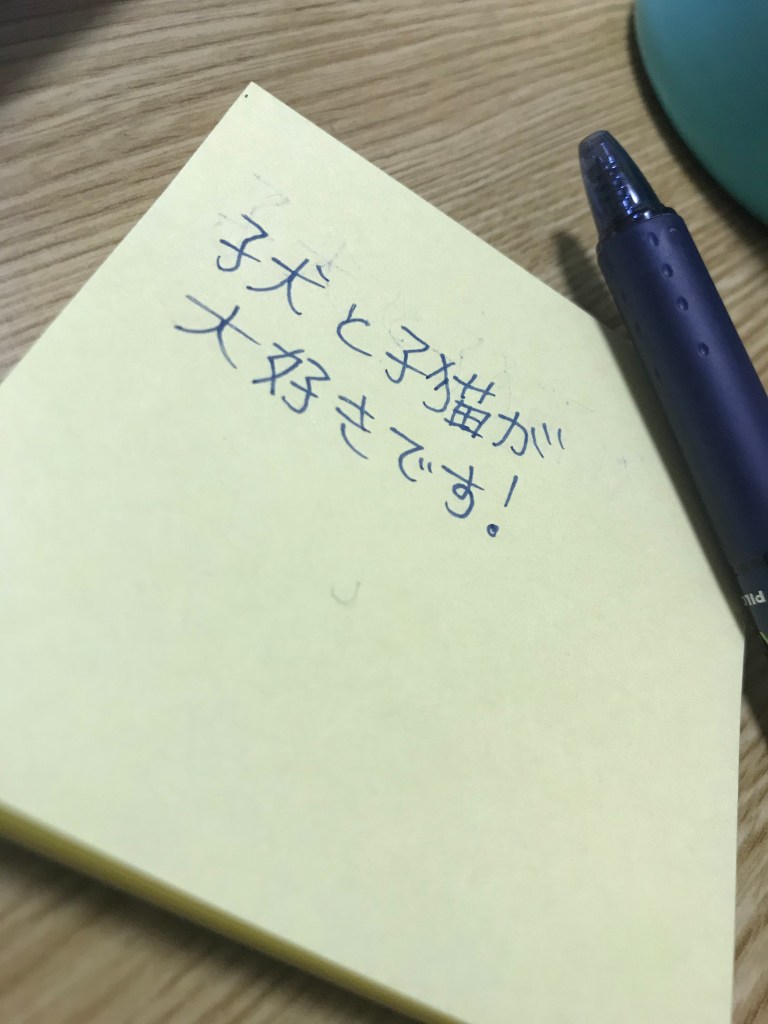 子犬と子猫が
大好きです!
PILO